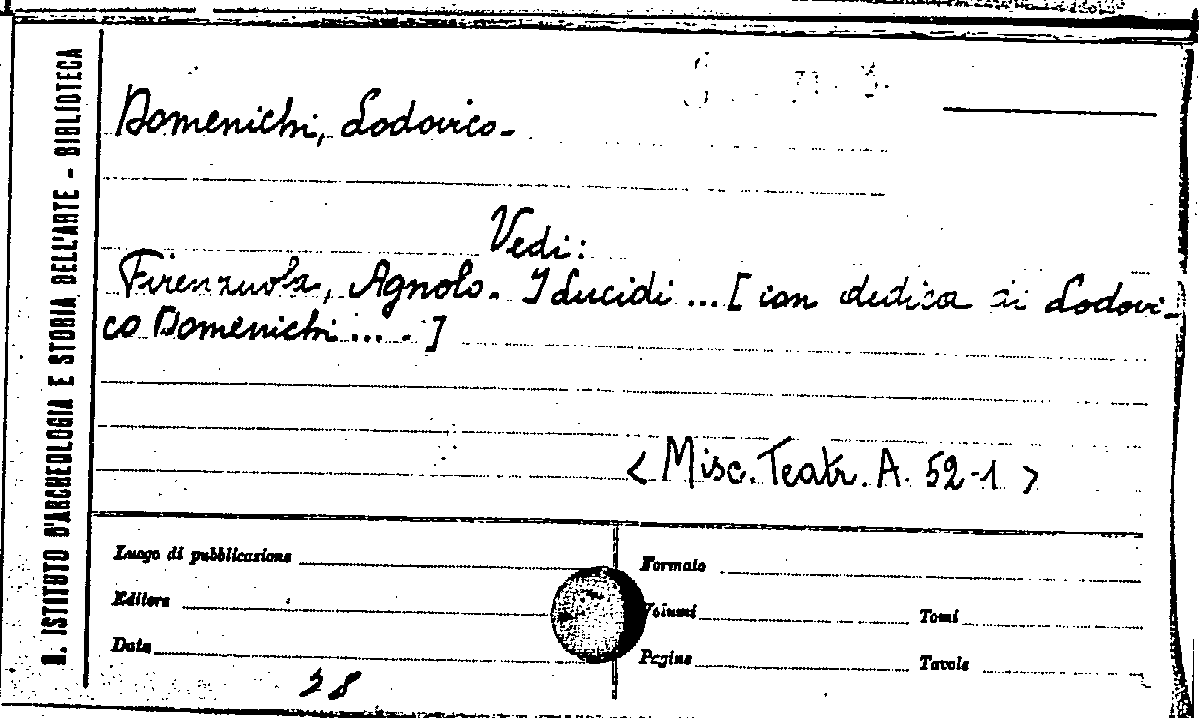 R. ISTITUTO D'ARCHEOLOGIA E STORIA DELL'ARTE - BIBLIOTECA
Domenichi, Lodovico-
Vedi:
Firenzuola, Agnolo. I Lucidi ... [con dedica di Lodovi-
co Domenichi ....]
< Misc. Teatr. A. 52-1 >
Luogo di pubblicazione
Formato
Editore
Volumi
Tomi
Data
Pagine
Tavole
28